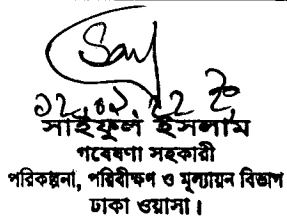 সাইফুল ইসলাম
গবেষণা সহকারী
পরিকল্পনা, পরিবীক্ষণ ও মূল্যায়ন বিভাগ
ঢাকা ওয়াসা।